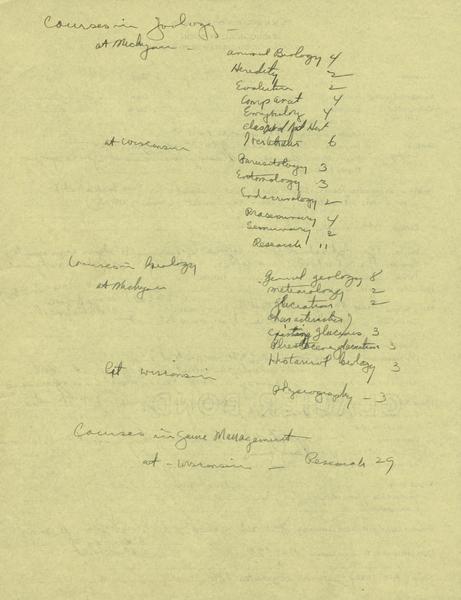 Courses in Zoology -
at Michigan - animal Biology 4
Heredity 2
Evolution 2
Comparat 4
Embryology 4
class of Nat Hist
at Wisconsin Invertebrates 6
Parasitology 3
Entomology 3
Endocrinology 2
Proseminary 4
Seminary 2
Research 11
Courses in Geology
at Michigan General geology 8
meteorology 2
glaciation 2
characteristics
existing glaciers 3
Pleistocene glaciation 3
Historical Geology 3
At Wisconsin
Physiography - 3
Courses in Game Management
at - Wisconsin - Research 29